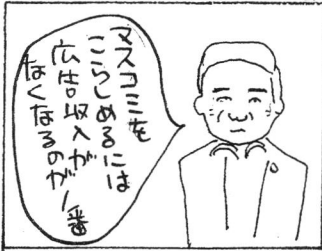 マスコミを
こらしめるには
広告収入が
なくなるのが一番